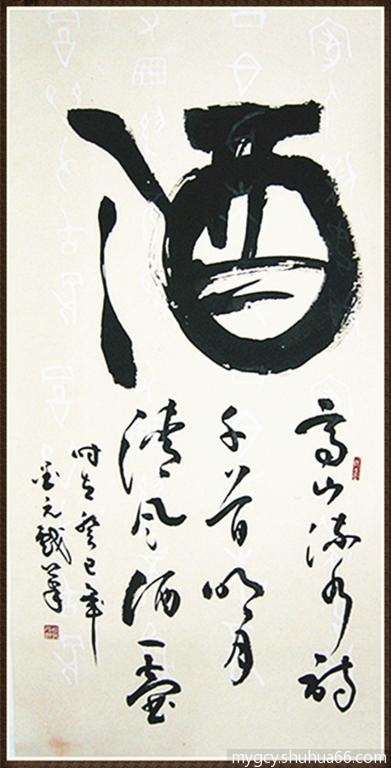 酒
高山流水詩
千首明月
清风酒一壺
时在癸巳年
mygcy.shuhua66.com